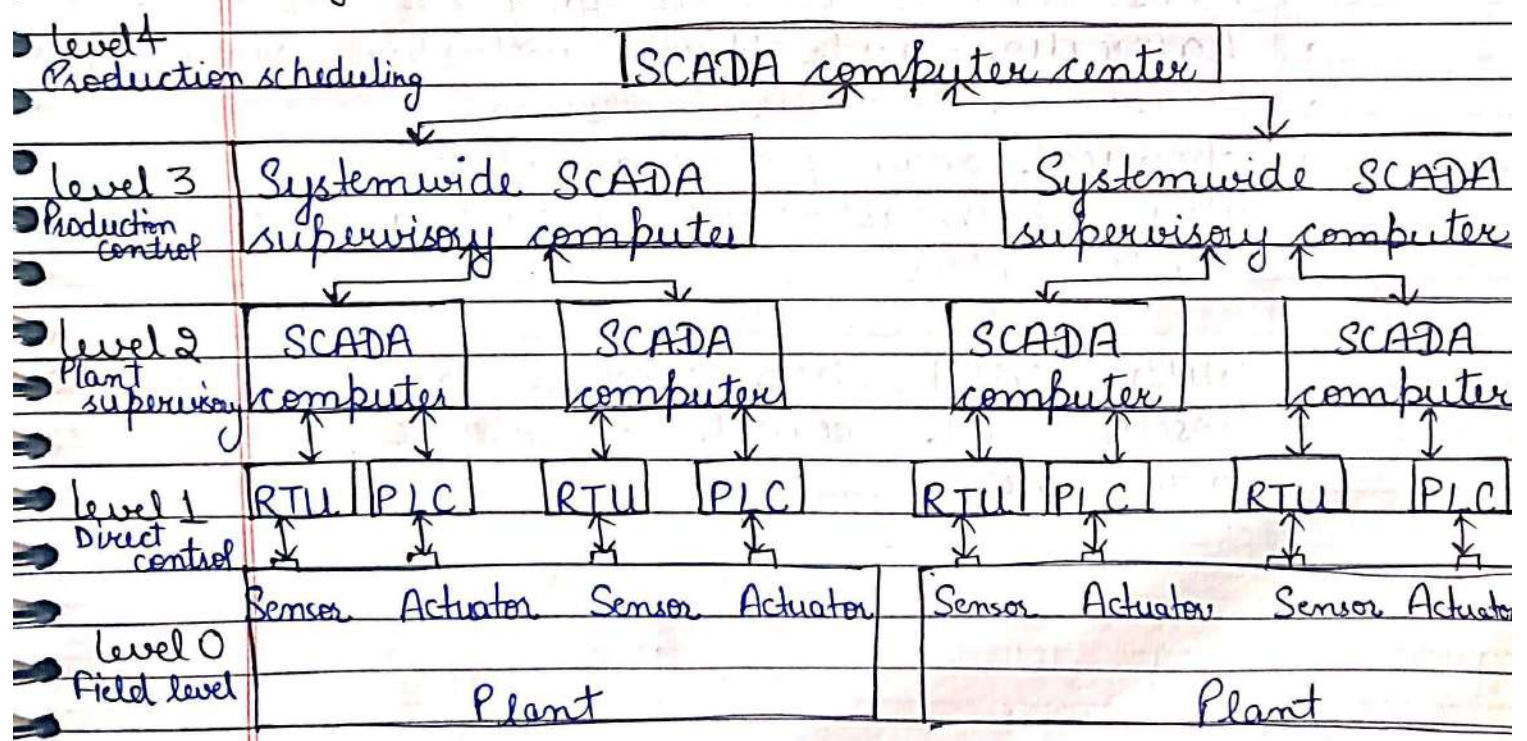 Level 4
Production scheduling
SCADA computer center
Level 3
Production
control
Systemwide SCADA
supervisory computer
Systemwide SCADA
supervisory computer
Level 2
Plant
supervisory
SCADA
computer
SCADA
computer
SCADA
computer
SCADA
computer
Level 1
Direct
control
RTU PLC RTU PLC RTU PLC RTU PLC
Sensor Actuator Sensor Actuator Sensor Actuator Sensor Actuato
Level 0
Field level
Plant
Plant